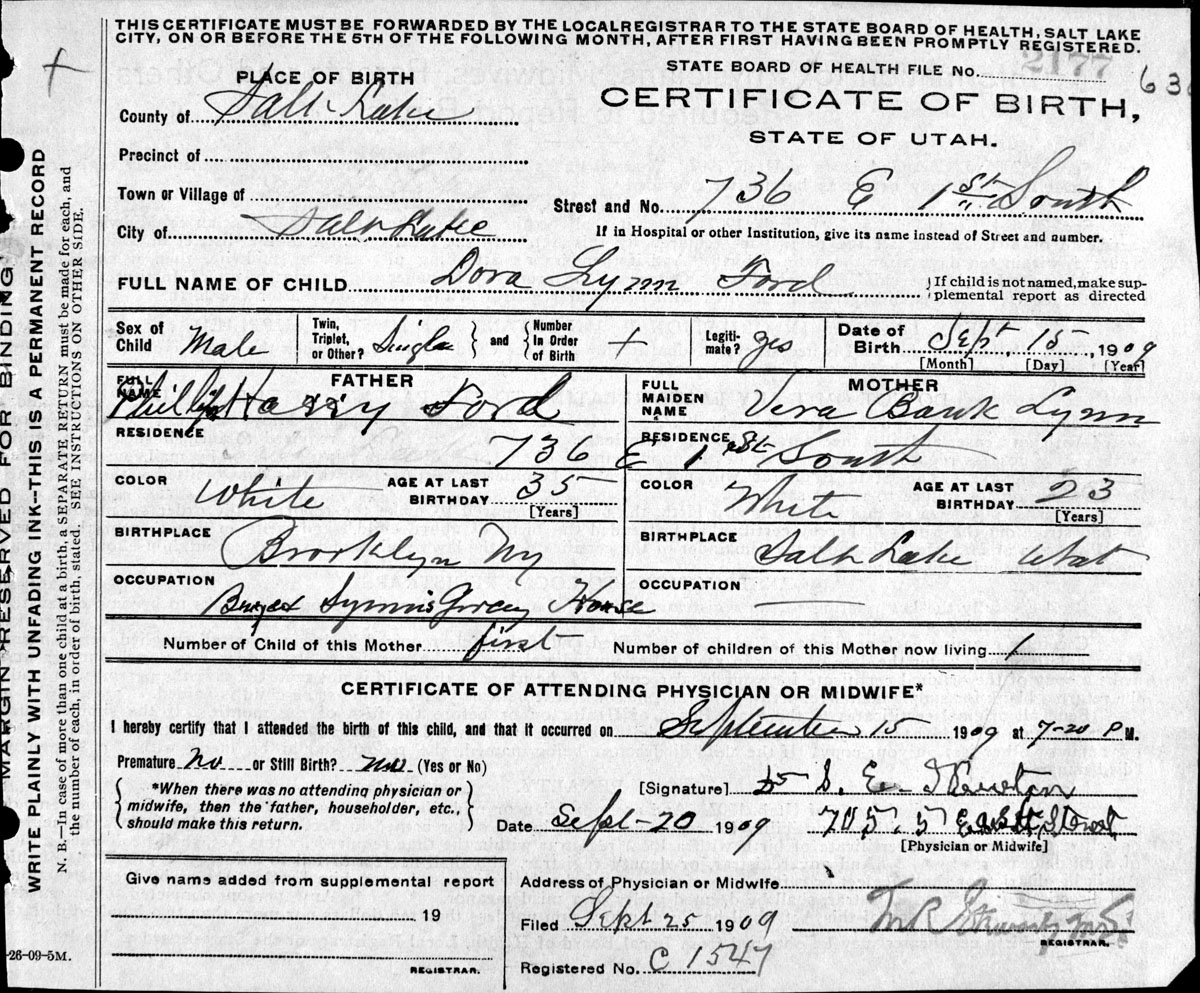 THIS CERTIFICATE MUST BE FORWARDED BY THE LOCAL REGISTRAR TO THE STATE BOARD OF HEALTH, SALT LAKE
CITY, ON OR BEFORE THE 5TH OF THE FOLLOWING MONTH, AFTER FIRST HAVING BEEN PROMPTLY REGISTERED.
STATE BOARD OF HEALTH FILE No. 2177
PLACE OF BIRTH
CERTIFICATE OF BIRTH,
STATE OF UTAH.
County of Salt Lake
Precinct of
Town or Village of
Street and No. 736 E 1st South
City of Salt Lake
If in Hospital or other Institution, give its name instead of Street and number.
FULL NAME OF CHILD Dora Lynn Ford
If child is not named, make sup-
plemental report as directed
Sex of Child Male
Twin, Triplet, or Other? Single and Number In Order of Birth +
Legiti-mate? yes
Date of Birth Sept 15, 1909
[Month] [Day] (Year)
FATHER
FULL NAME Phillip Harry Ford
MOTHER
FULL MAIDEN NAME Vera Bank Lynn
RESIDENCE 736 E 1st South
RESIDENCE
COLOR White AGE AT LAST BIRTHDAY 35
[Years]
COLOR White AGE AT LAST BIRTHDAY 23
[Years]
BIRTHPLACE Brooklyn Ny
BIRTHPLACE Salt Lake Utah
OCCUPATION House
OCCUPATION
Number of Child of this Mother first Number of children of this Mother now living 1
CERTIFICATE OF ATTENDING PHYSICIAN OR MIDWIFE*
I hereby certify that I attended the birth of this child, and that it occurred on September 15 1909 at 7-20 P M.
Premature No or Still Birth? No (Yes or No)
*When there was no attending physician or
midwife, then the father, householder, etc.,
should make this return.
[Signature] S. E. Newton
Date Sept-20 1909 705. 5 East Street
[Physician or Midwife]
Give name added from supplemental report
19
REGISTRAR.
Address of Physician or Midwife
Filed Sept 25 1909
REGISTRAR.
Registered No. C 1547
-26-09-5M.
MARGIN RESERVED FOR BINDING
WRITE PLAINLY WITH UNFADING INK--THIS IS A PERMANENT RECORD
N. B.—In case of more than one child at a birth, a SEPARATE RETURN must be made for each, and
the number of each, in order of birth, stated. SEE INSTRUCTIONS ON OTHER SIDE.